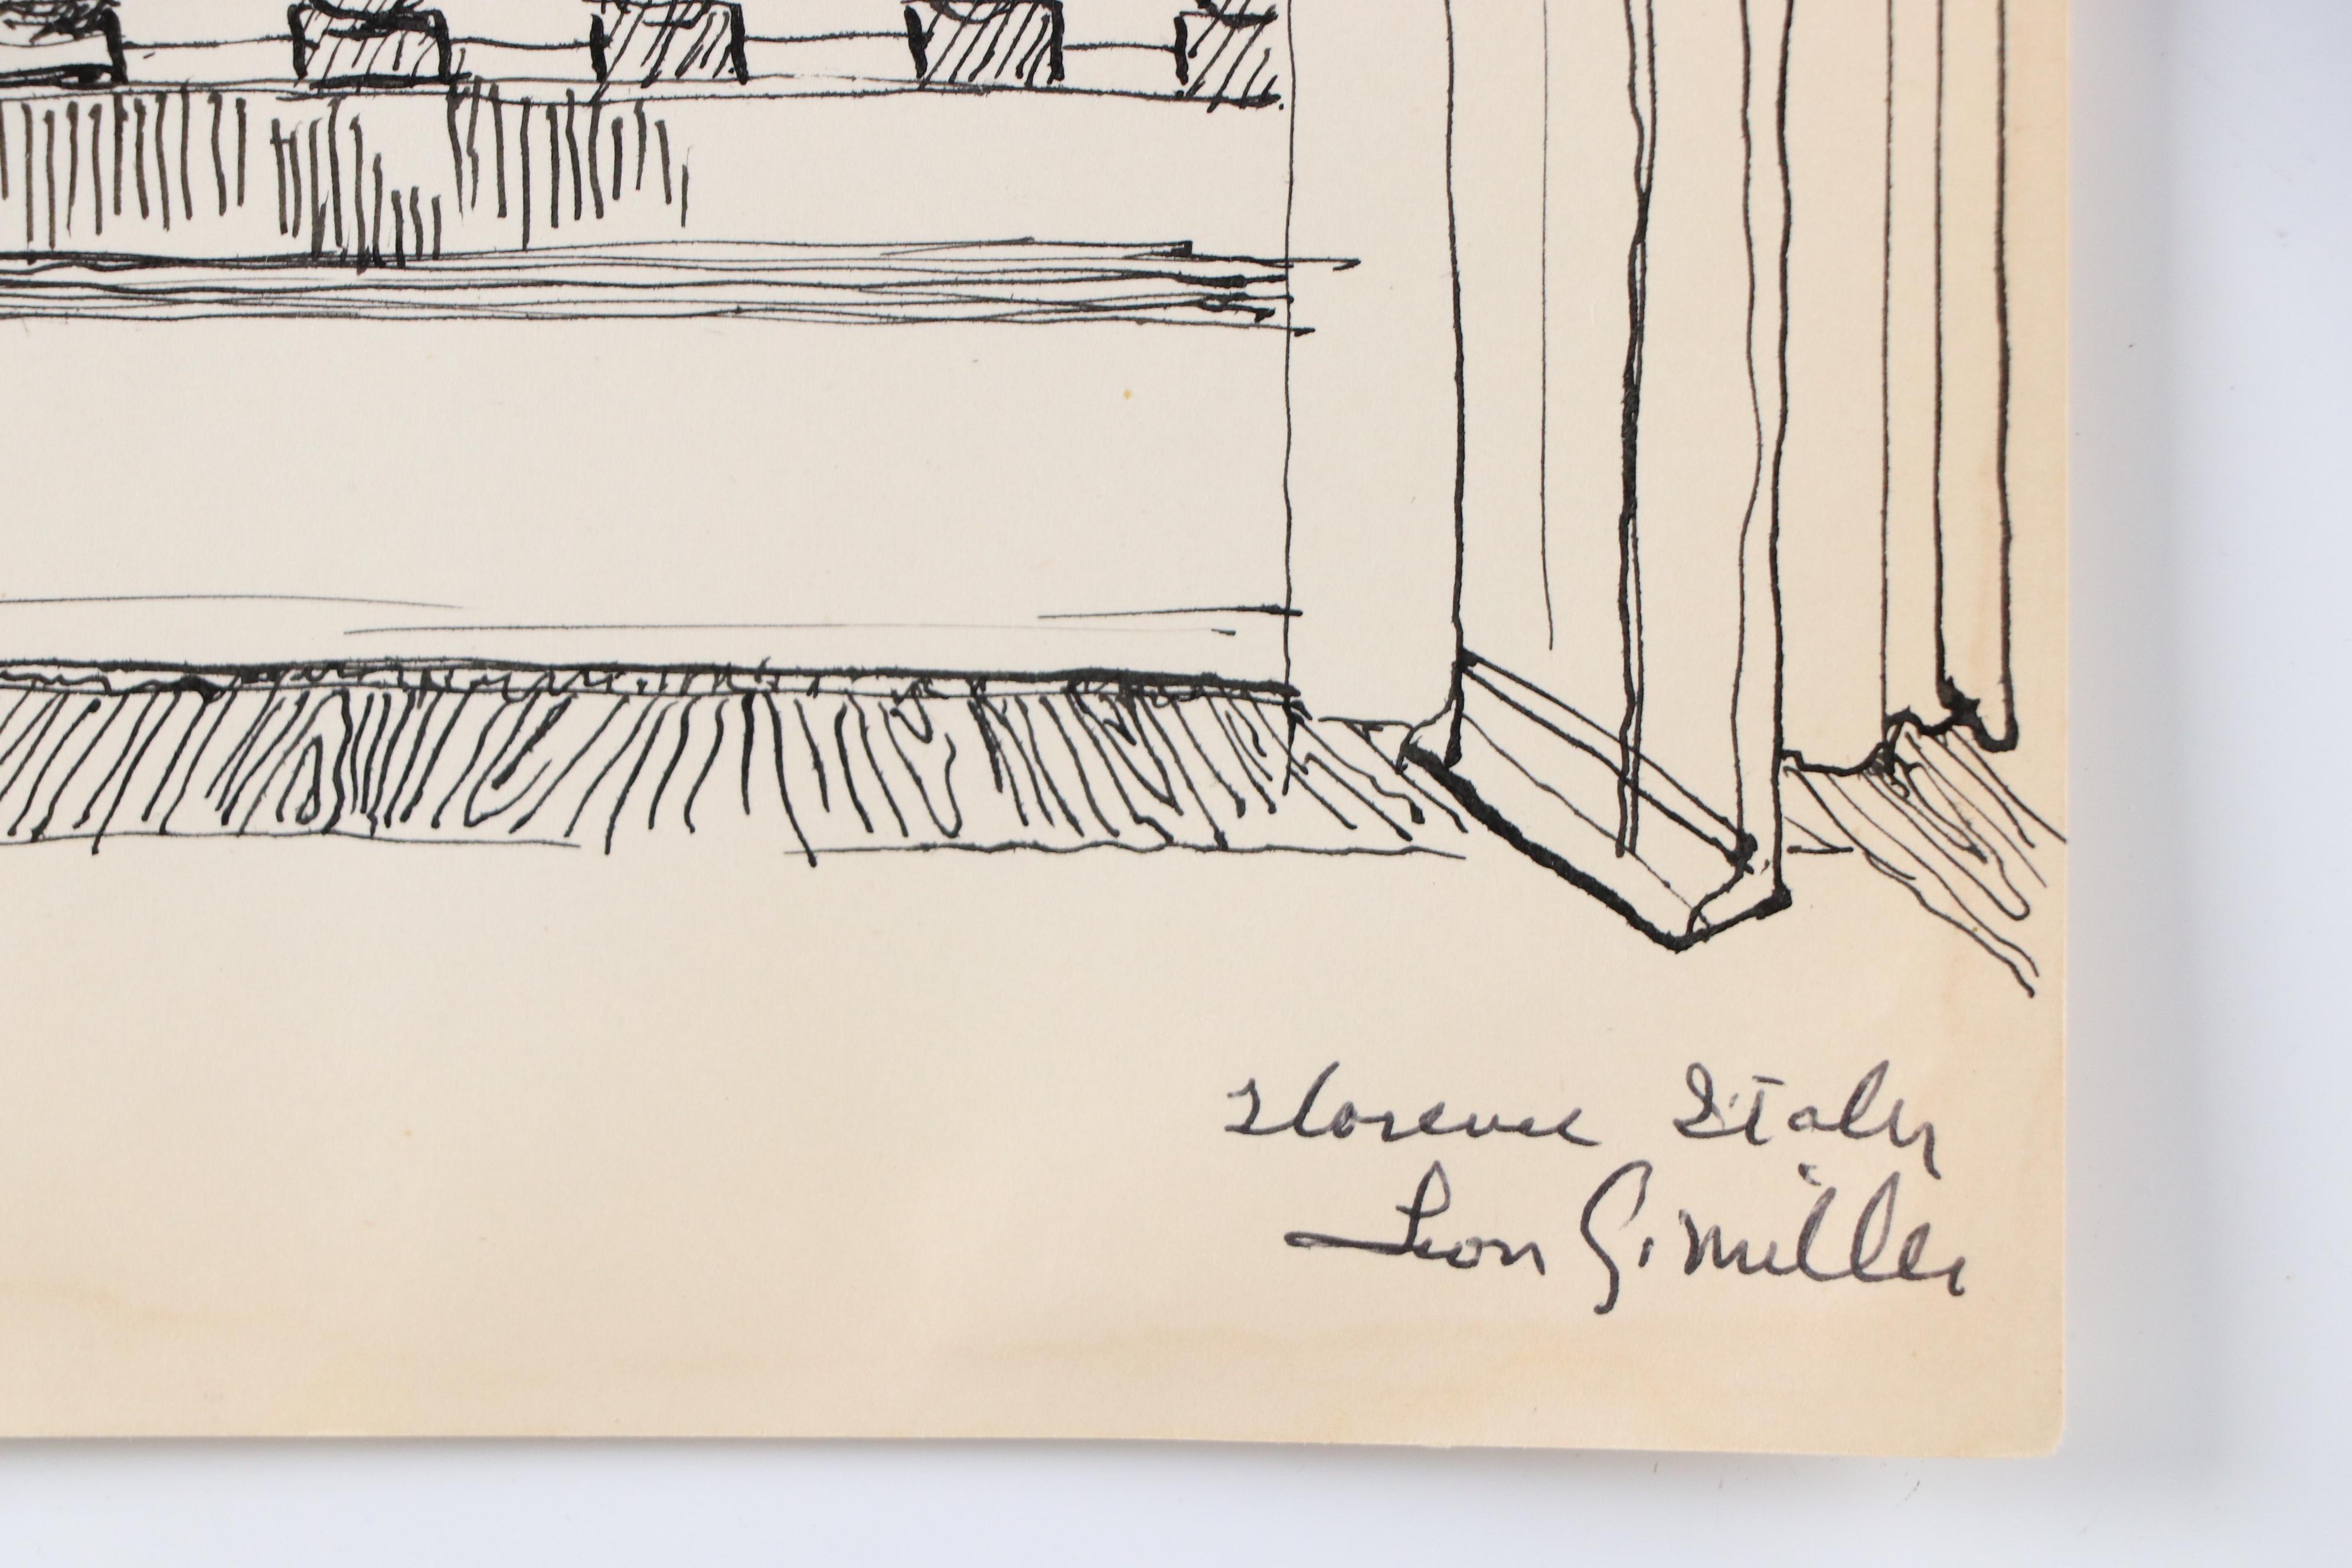 Florence Italy
Leon G. Miller